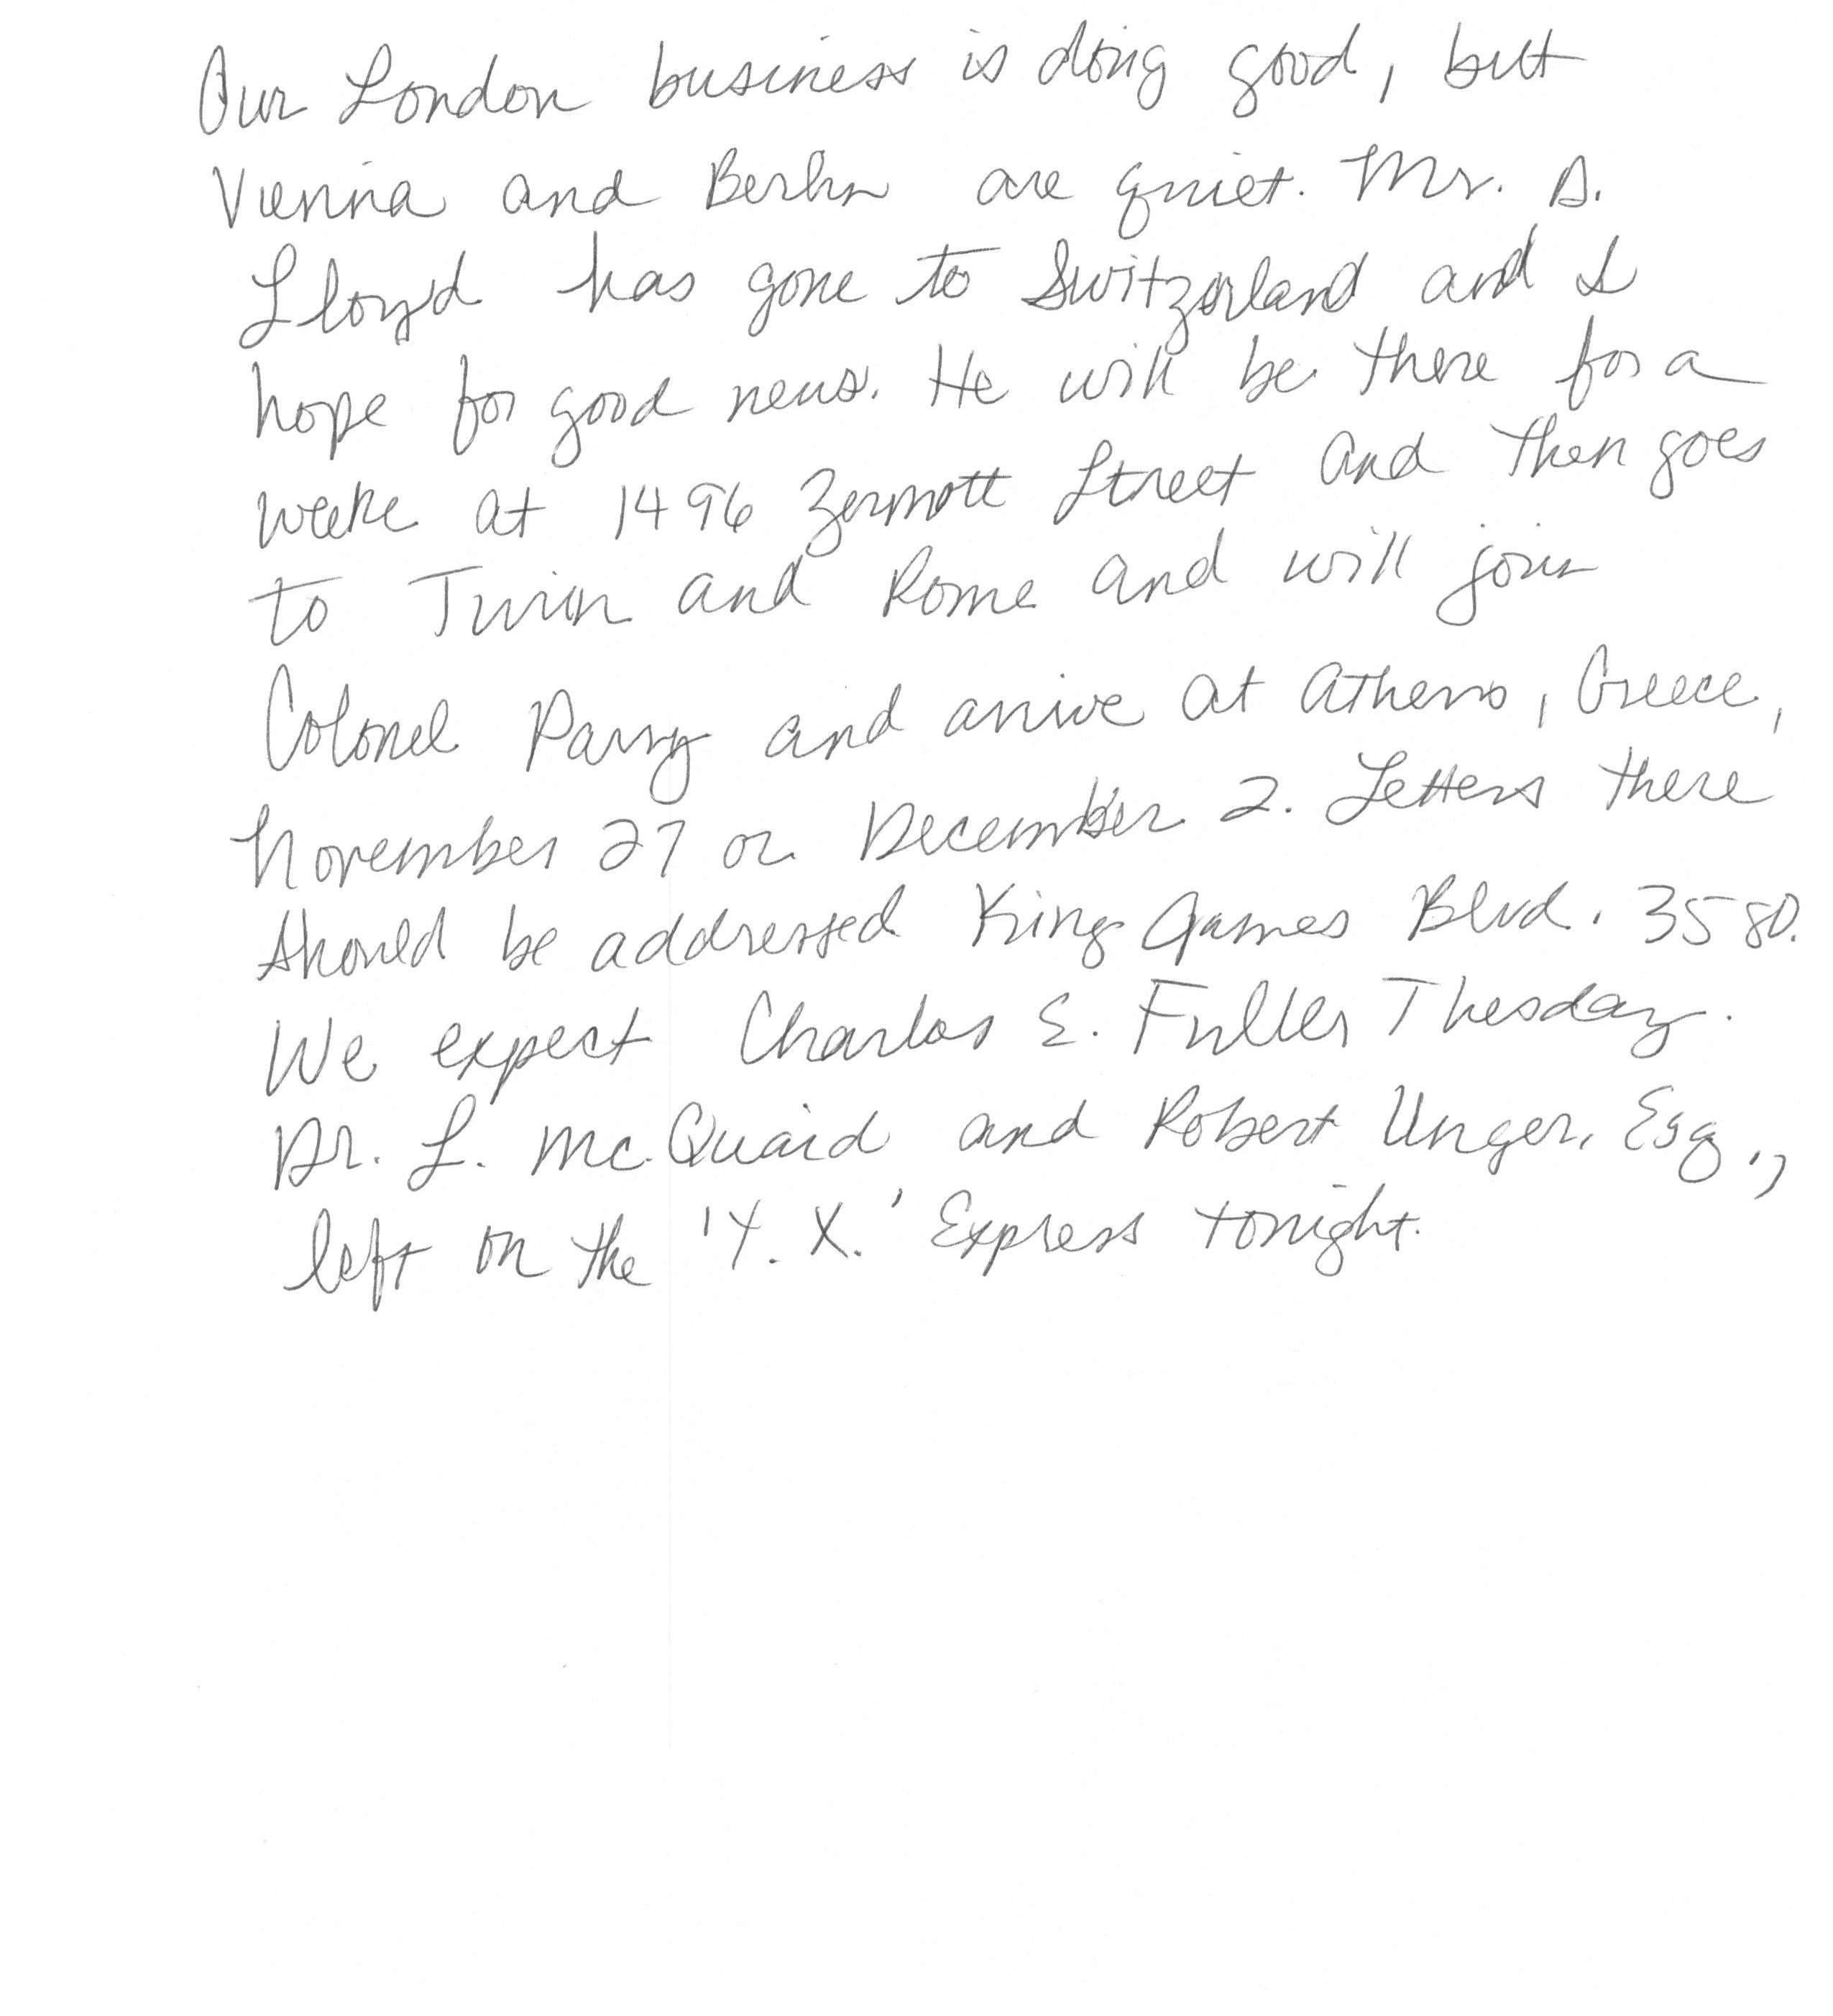 Our London business is doing good, but
Vienna and Berlin are quiet. Mr. D.
Lloyd has gone to Switzerland and I
hope for good news. He will be there for a
week at 1496 Zermott Street and then goes
to Turin and Rome and will join
Colonel Parry and arrive at Athens, Greece,
November 27 or December 2. Letters there
should be addressed King James Blvd. 3580.
We expect Charles E. Fuller Thesday.
Dr. L. Mc.Quaid and Robert Unger, Esq.,
left on the 'Y. X.' Express tonight.